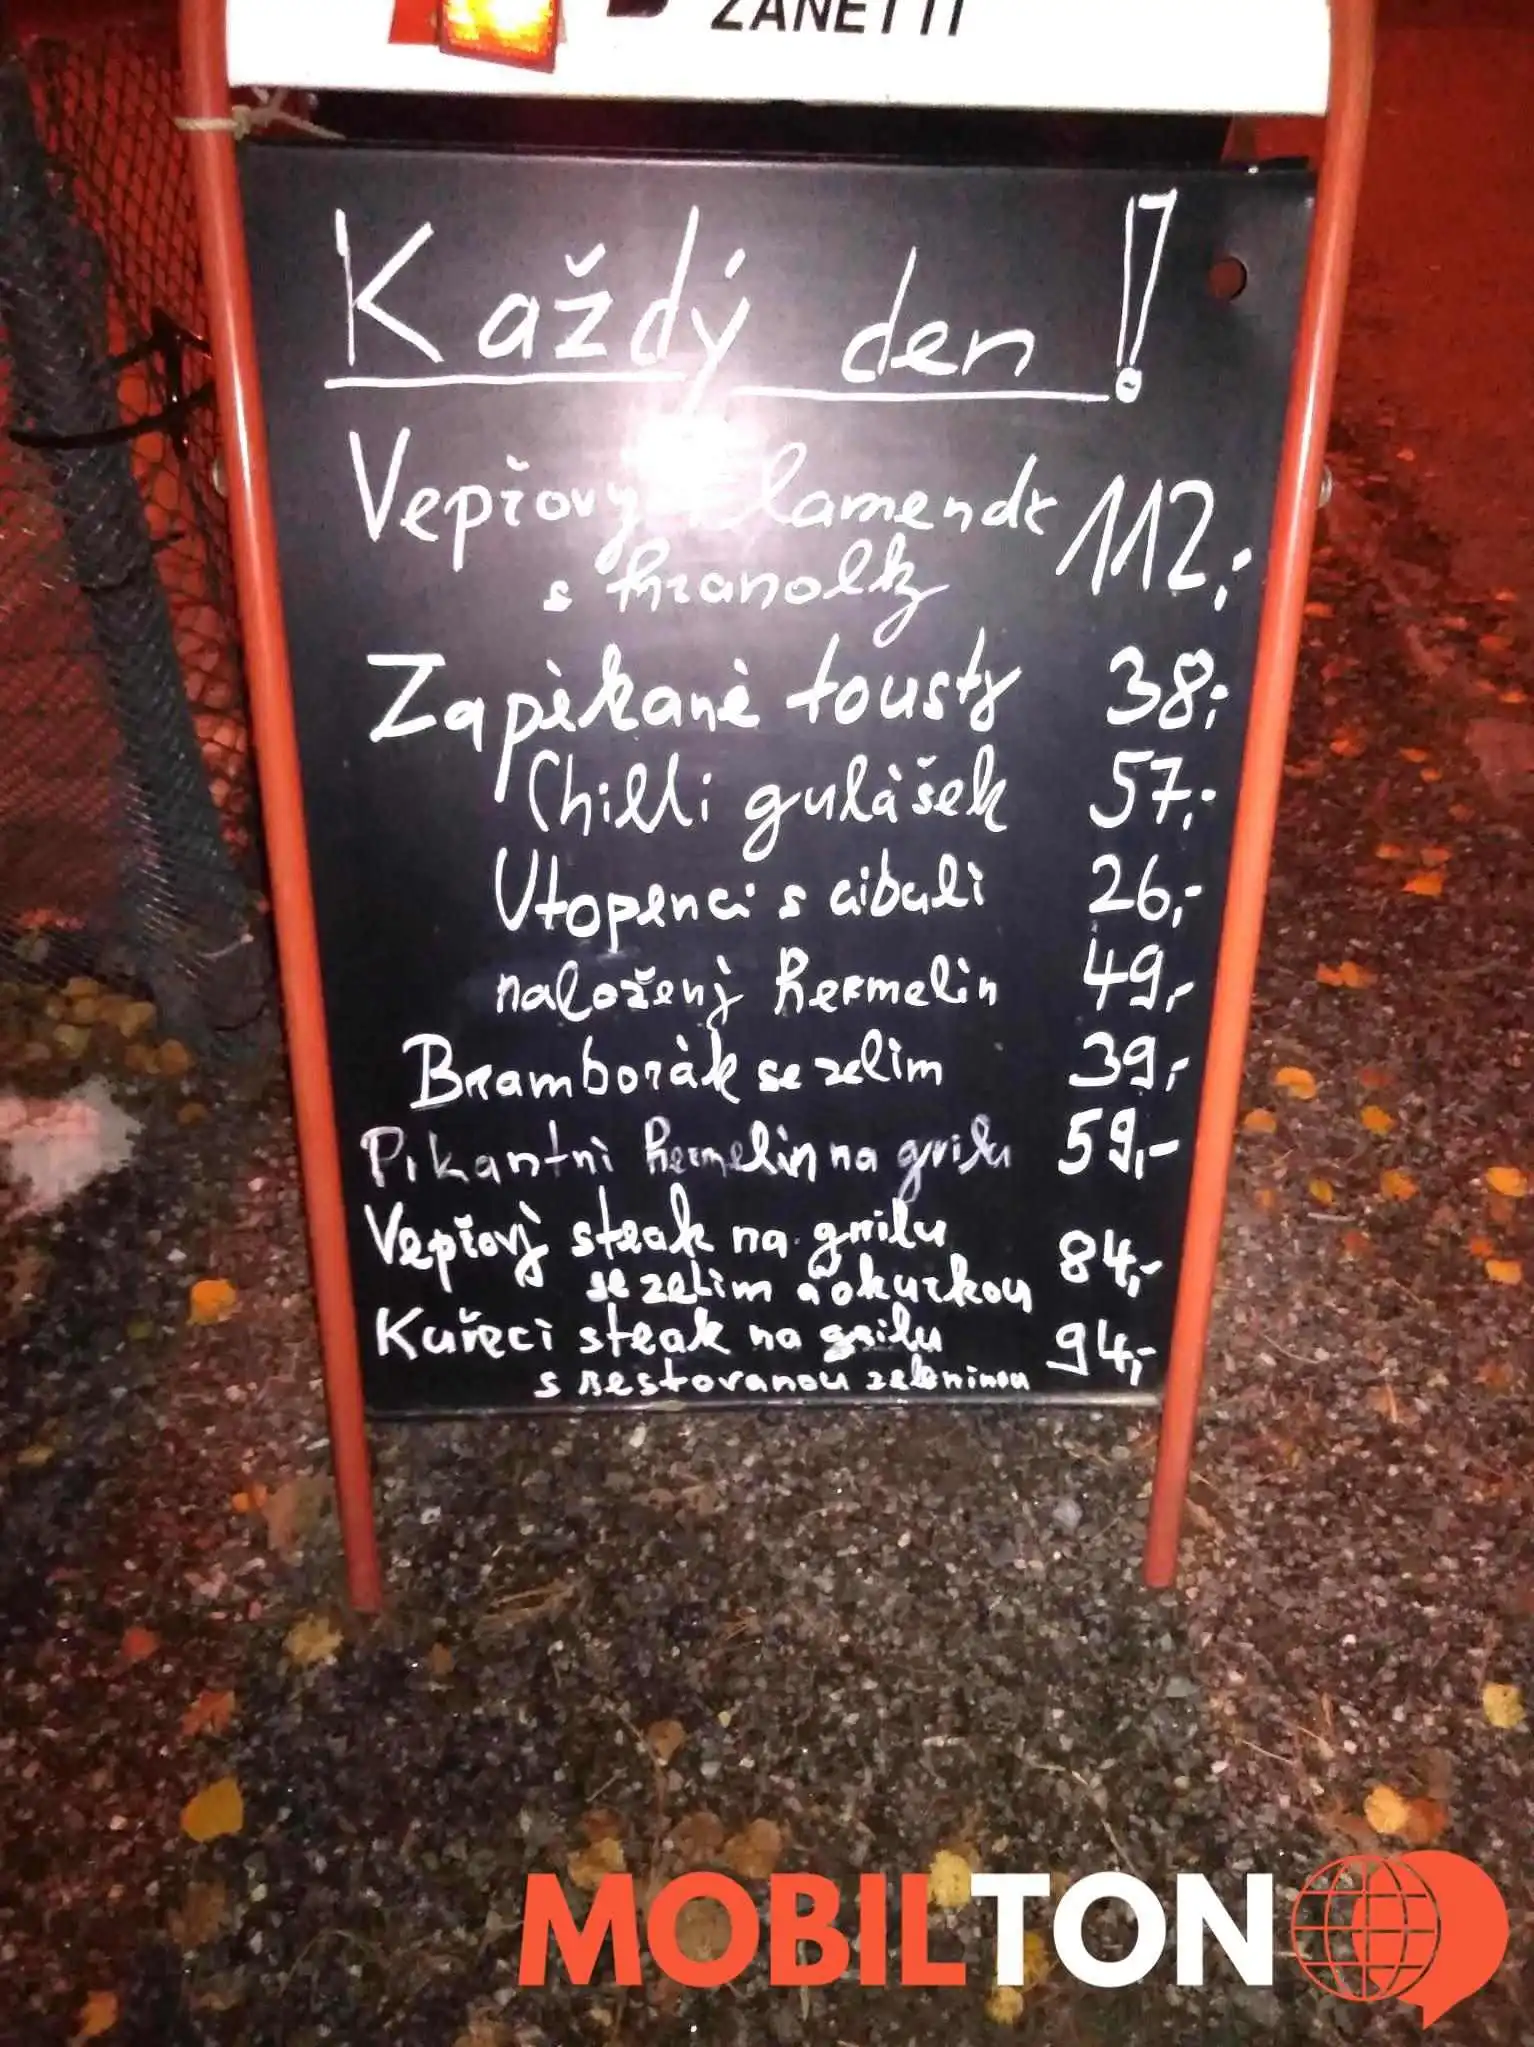 ZANETTI
Každý den !
Vepřový flamendr 112,-
s hranolky
Zapékané tousty 38,-
Chilli gulášek 57,-
Utopenci s cibulí 26,-
naložený hermelin 49,-
Bramborák se zelím 39,-
Pikantní hermelin na grilu 59,-
Vepřový steak na grilu 84,-
se zelím a okurkou
Kuřecí steak na grilu 94,-
s restovanou zeleninou
MOBILTON